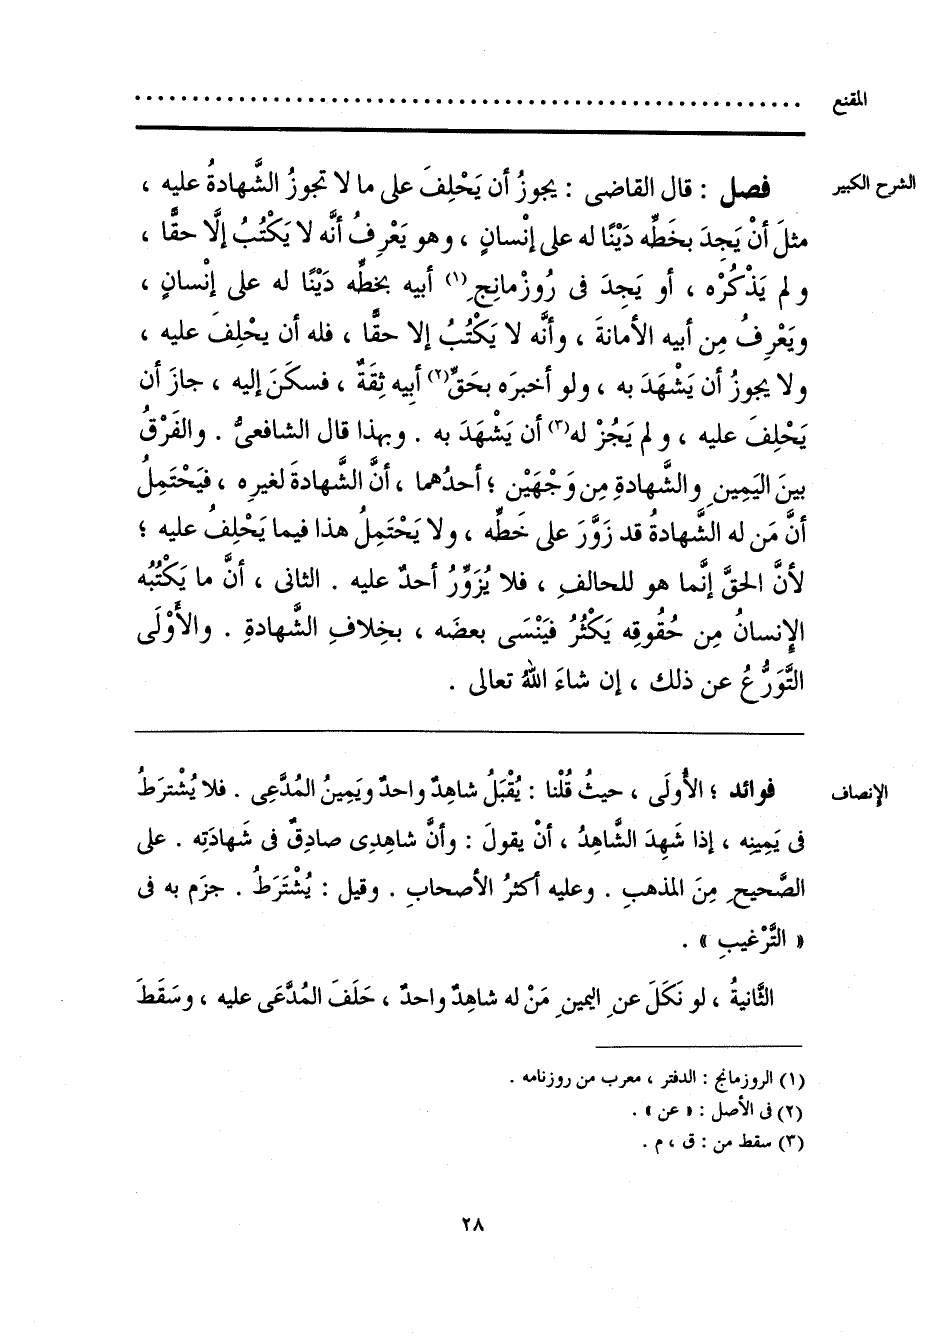 المقنع ......................................................
الشرح الكبير
فصل : قال القاضى : يجوزُ أن يَحْلِفَ على ما لا تجوزُ الشَّهادةُ عليه ،
مثلَ أنْ يَجِدَ بخَطِّه دَيْنًا له على إنْسانٍ ، وهو يَعْرِفُ أنَّه لا يَكْتُبُ إلَّا حقًّا ،
ولم يَذْكُرْه ، أو يَجِدَ فى رُوزْمانِجِ(١) أبيه بخطِّه دَيْنًا له على إنْسانٍ ،
ويَعْرِفُ مِن أبيه الأمانةَ ، وأنَّه لا يَكْتُبُ إلا حقًّا ، فله أن يحْلِفَ عليه ،
ولا يجوزُ أن يَشْهَدَ به ، ولو أخبرَه بحَقِّ(٢) أبيه ثِقَةٌ ، فسكَنَ إليه ، جازَ أن
يَحْلِفَ عليه ، ولم يَجُزْ له(٣) أن يَشْهَدَ به . وبهذا قال الشافعىُّ . والفَرْقُ
بينَ اليَمِينِ والشَّهادةِ مِن وَجْهَيْن ؛ أحدُهما ، أنَّ الشَّهادةَ لغيرِه ، فيَحْتَمِلُ
أنَّ مَن له الشَّهادةُ قد زوَّرَ على خَطِّه ، ولا يَحْتَمِلُ هذا فيما يَحْلِفُ عليه ؛
لأنَّ الحقَّ إنَّما هو للحالفِ ، فلا يُزَوِّرُ أحدٌ عليه . الثانى ، أنَّ ما يَكْتُبُه
الإِنسانُ مِن حُقُوقِه يَكْثُرُ فيَنْسَى بعضَه ، بخِلافِ الشَّهادةِ . والأَوْلَى
التَّوَرُّعُ عن ذلك ، إن شاءَ اللهُ تعالى .
الإنصاف
فوائد ؛ الأُولَى ، حيثُ قُلْنا : يُقْبَلُ شاهِدٌ واحدٌ ويَمِينُ المُدَّعِى . فلا يُشْترَطُ
فى يَمِينِه ، إذا شَهِدَ الشَّاهِدُ ، أنْ يقولَ : وأنَّ شاهِدِى صادِقٌ فى شَهادَتِه . على
الصَّحيحِ مِنَ المذهبِ . وعليه أكثرُ الأصحابِ . وقيل : يُشْتَرَطُ . جزَم به فى
« التَّرْغيبِ » .
الثَّانيةُ ، لو نَكَلَ عنِ اليمينِ مَنْ له شاهِدٌ واحدٌ ، حَلَفَ المُدَّعَى عليه ، وسَقَطَ
(١) الروزمانج : الدفتر ، معرب من روزنامه .
(٢) فى الأصل : « عن » .
(٣) سقط من : ق ، م .
٢٨